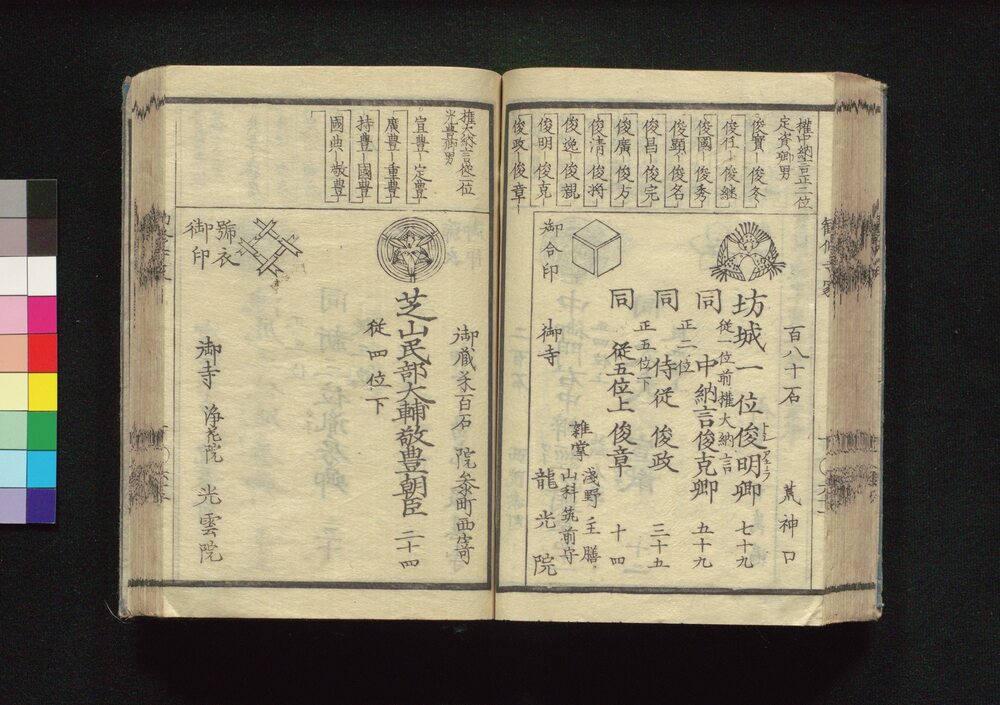 權中納言正二位
定資卿男
俊實―俊冬
俊任―俊継
俊國―俊秀
俊顯―俊名
俊昌―俊完
俊廣―俊方
俊清―俊將
俊逸―俊親
俊明―俊克
俊政―俊章
百八十石
荒神口
坊城一位俊明卿 七十九
トシ アキラ
從一位前權大納言
同 中納言俊克卿 五十九
正二位
同 侍従 俊政 三十五
正五位下
同 從五位上 俊章 十四
雜掌 淺野主膳
山科筑前守
御合印
御寺 龍光院
權大納言從一位
光豊卿男
宜豊―定豊
廣豊―重豊
持豊―國豊
國典―敬豊
御蔵米百石
芝山民部大輔敬豊朝臣 二十四
從四位下
御印
御寺 浄花院 光雲院